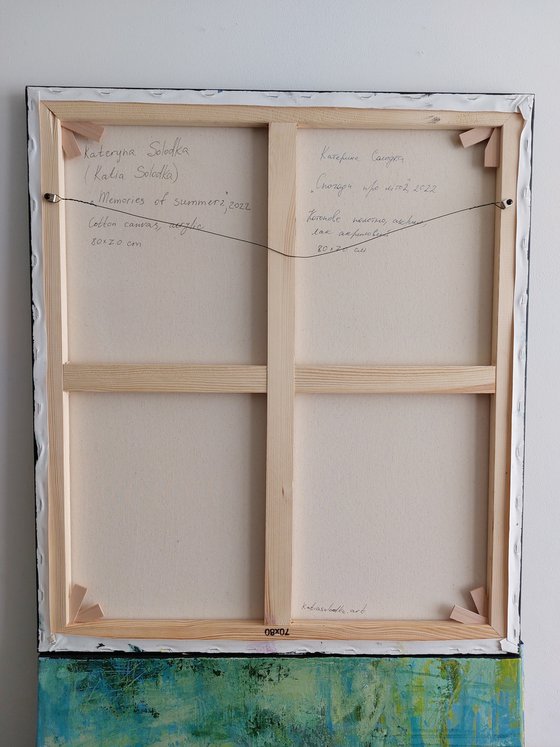 Kateryna Solodka
(Katia Solodka)
„Memories of summer 2", 2022
Cotton canvas, acrylic
80x70 cm
Катерина Солодка
„Спогади про літо 2", 2022
полотно,
лак акриловий
80x70 см
katiasolodka.art
70x80